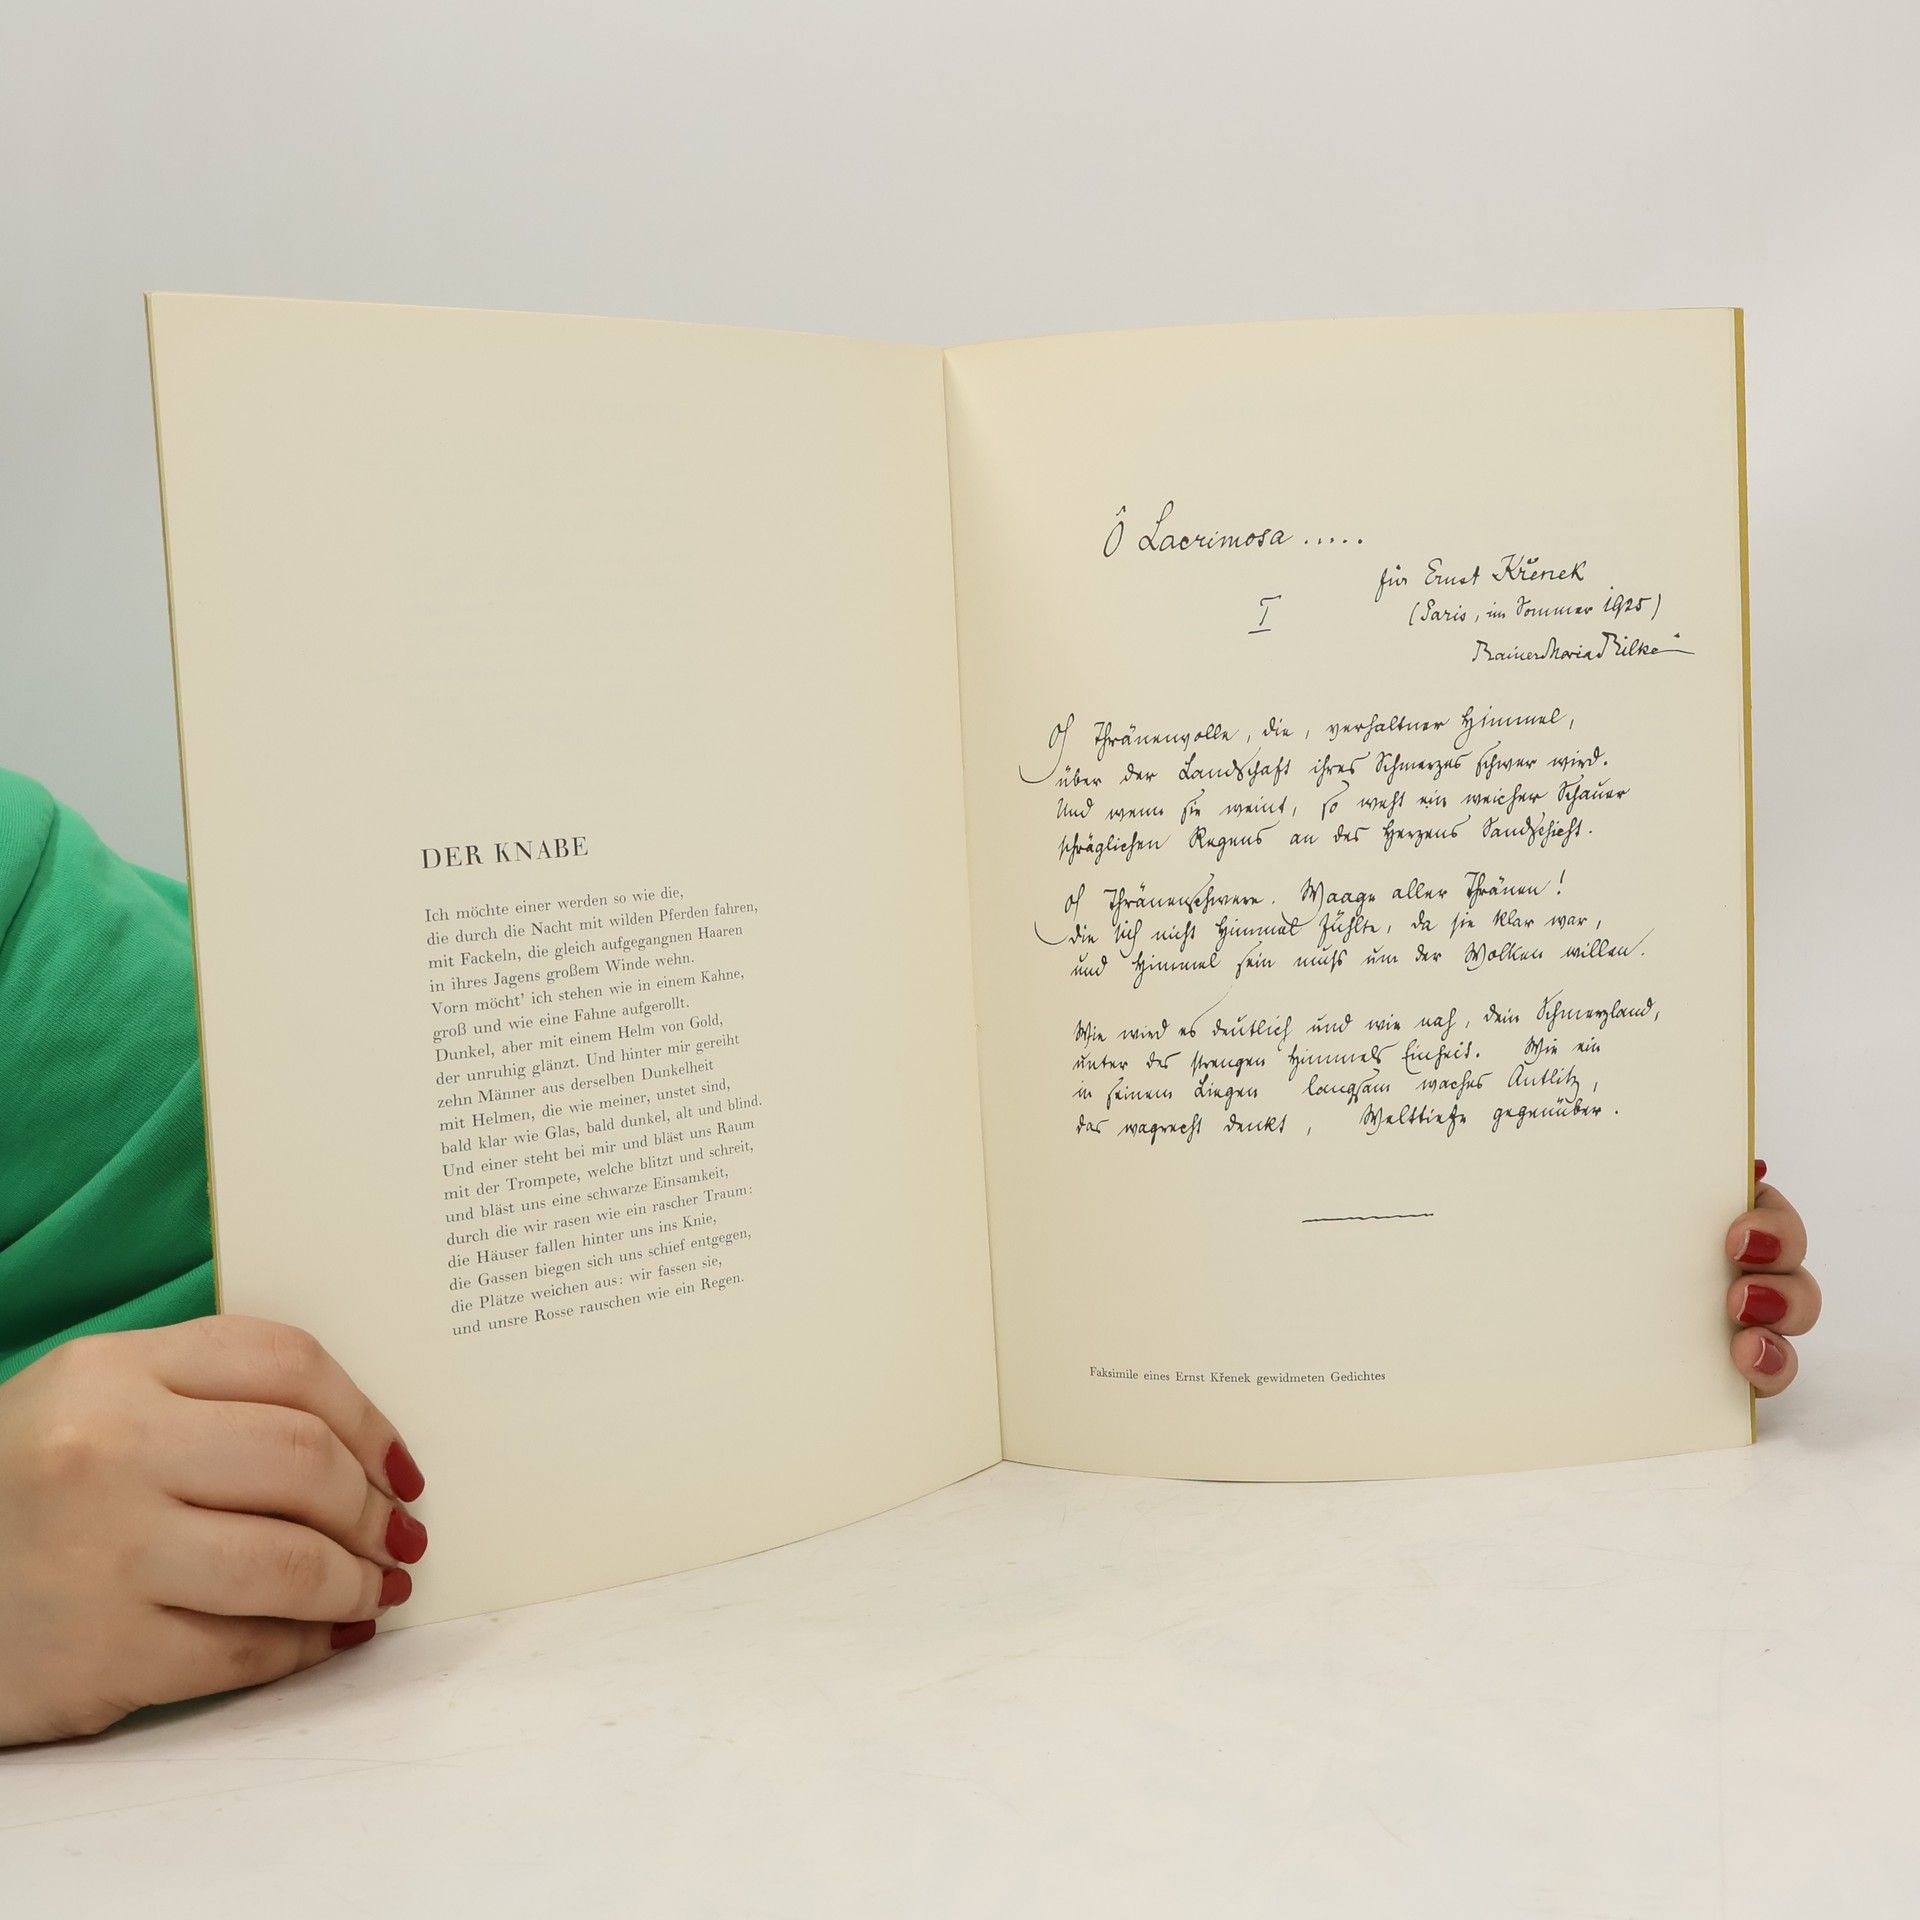 DER KNABE
Ich möchte einer werden so wie die,
die durch die Nacht mit wilden Pferden fahren,
mit Fackeln, die gleich aufgegangnen Haaren
in ihres Jagens großem Winde wehn.
Vorn möcht' ich stehen wie in einem Kahne,
groß und wie eine Fahne aufgerollt.
Dunkel, aber mit einem Helm von Gold,
der unruhig glänzt. Und hinter mir gereiht
zehn Männer aus derselben Dunkelheit
mit Helmen, die wie meiner, unstet sind,
bald klar wie Glas, bald dunkel, alt und blind.
Und einer steht bei mir und bläst uns Raum
mit der Trompete, welche blitzt und schreit,
und bläst uns eine schwarze Einsamkeit,
durch die wir rasen wie ein rascher Traum:
die Häuser fallen hinter uns ins Knie,
die Gassen biegen sich uns schief entgegen,
die Plätze weichen aus: wir fassen sie,
und unsre Rosse rauschen wie ein Regen.
Ô Lacrimosa .....
für Ernst Křenek
(Paris, im Sommer 1925)
I
Rainer Maria Rilke
Oh Thränenvolle, die, verhaltner Himmel,
über der Landschaft ihres Schmerzes schwer wird.
Und wenn sie weint, so weht ein weicher Schauer
schräglichen Regens an des Herzens Sandschicht.
Oh Thränenschwere. Waage aller Thränen!
die sich nicht Himmel fühlte, da sie klar war,
und Himmel sein muſs um der Wolken willen.
Wie wird es deutlich und wie nah, dein Schmerzland,
unter des strengen Himmels Einheit. Wie ein
in seinem Liegen langsam waches Antlitz,
das wagrecht denkt, Welttiefe gegenüber.
Faksimile eines Ernst Křenek gewidmeten Gedichtes